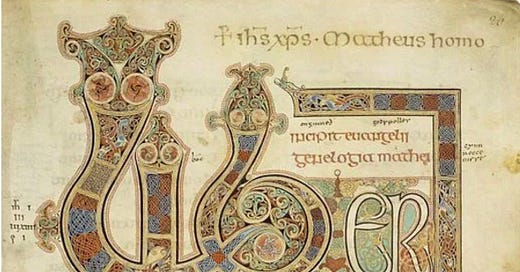 ✝ ihs xps · Matheus homo
incipit evangelii
genelogia mathei
boc
LibER